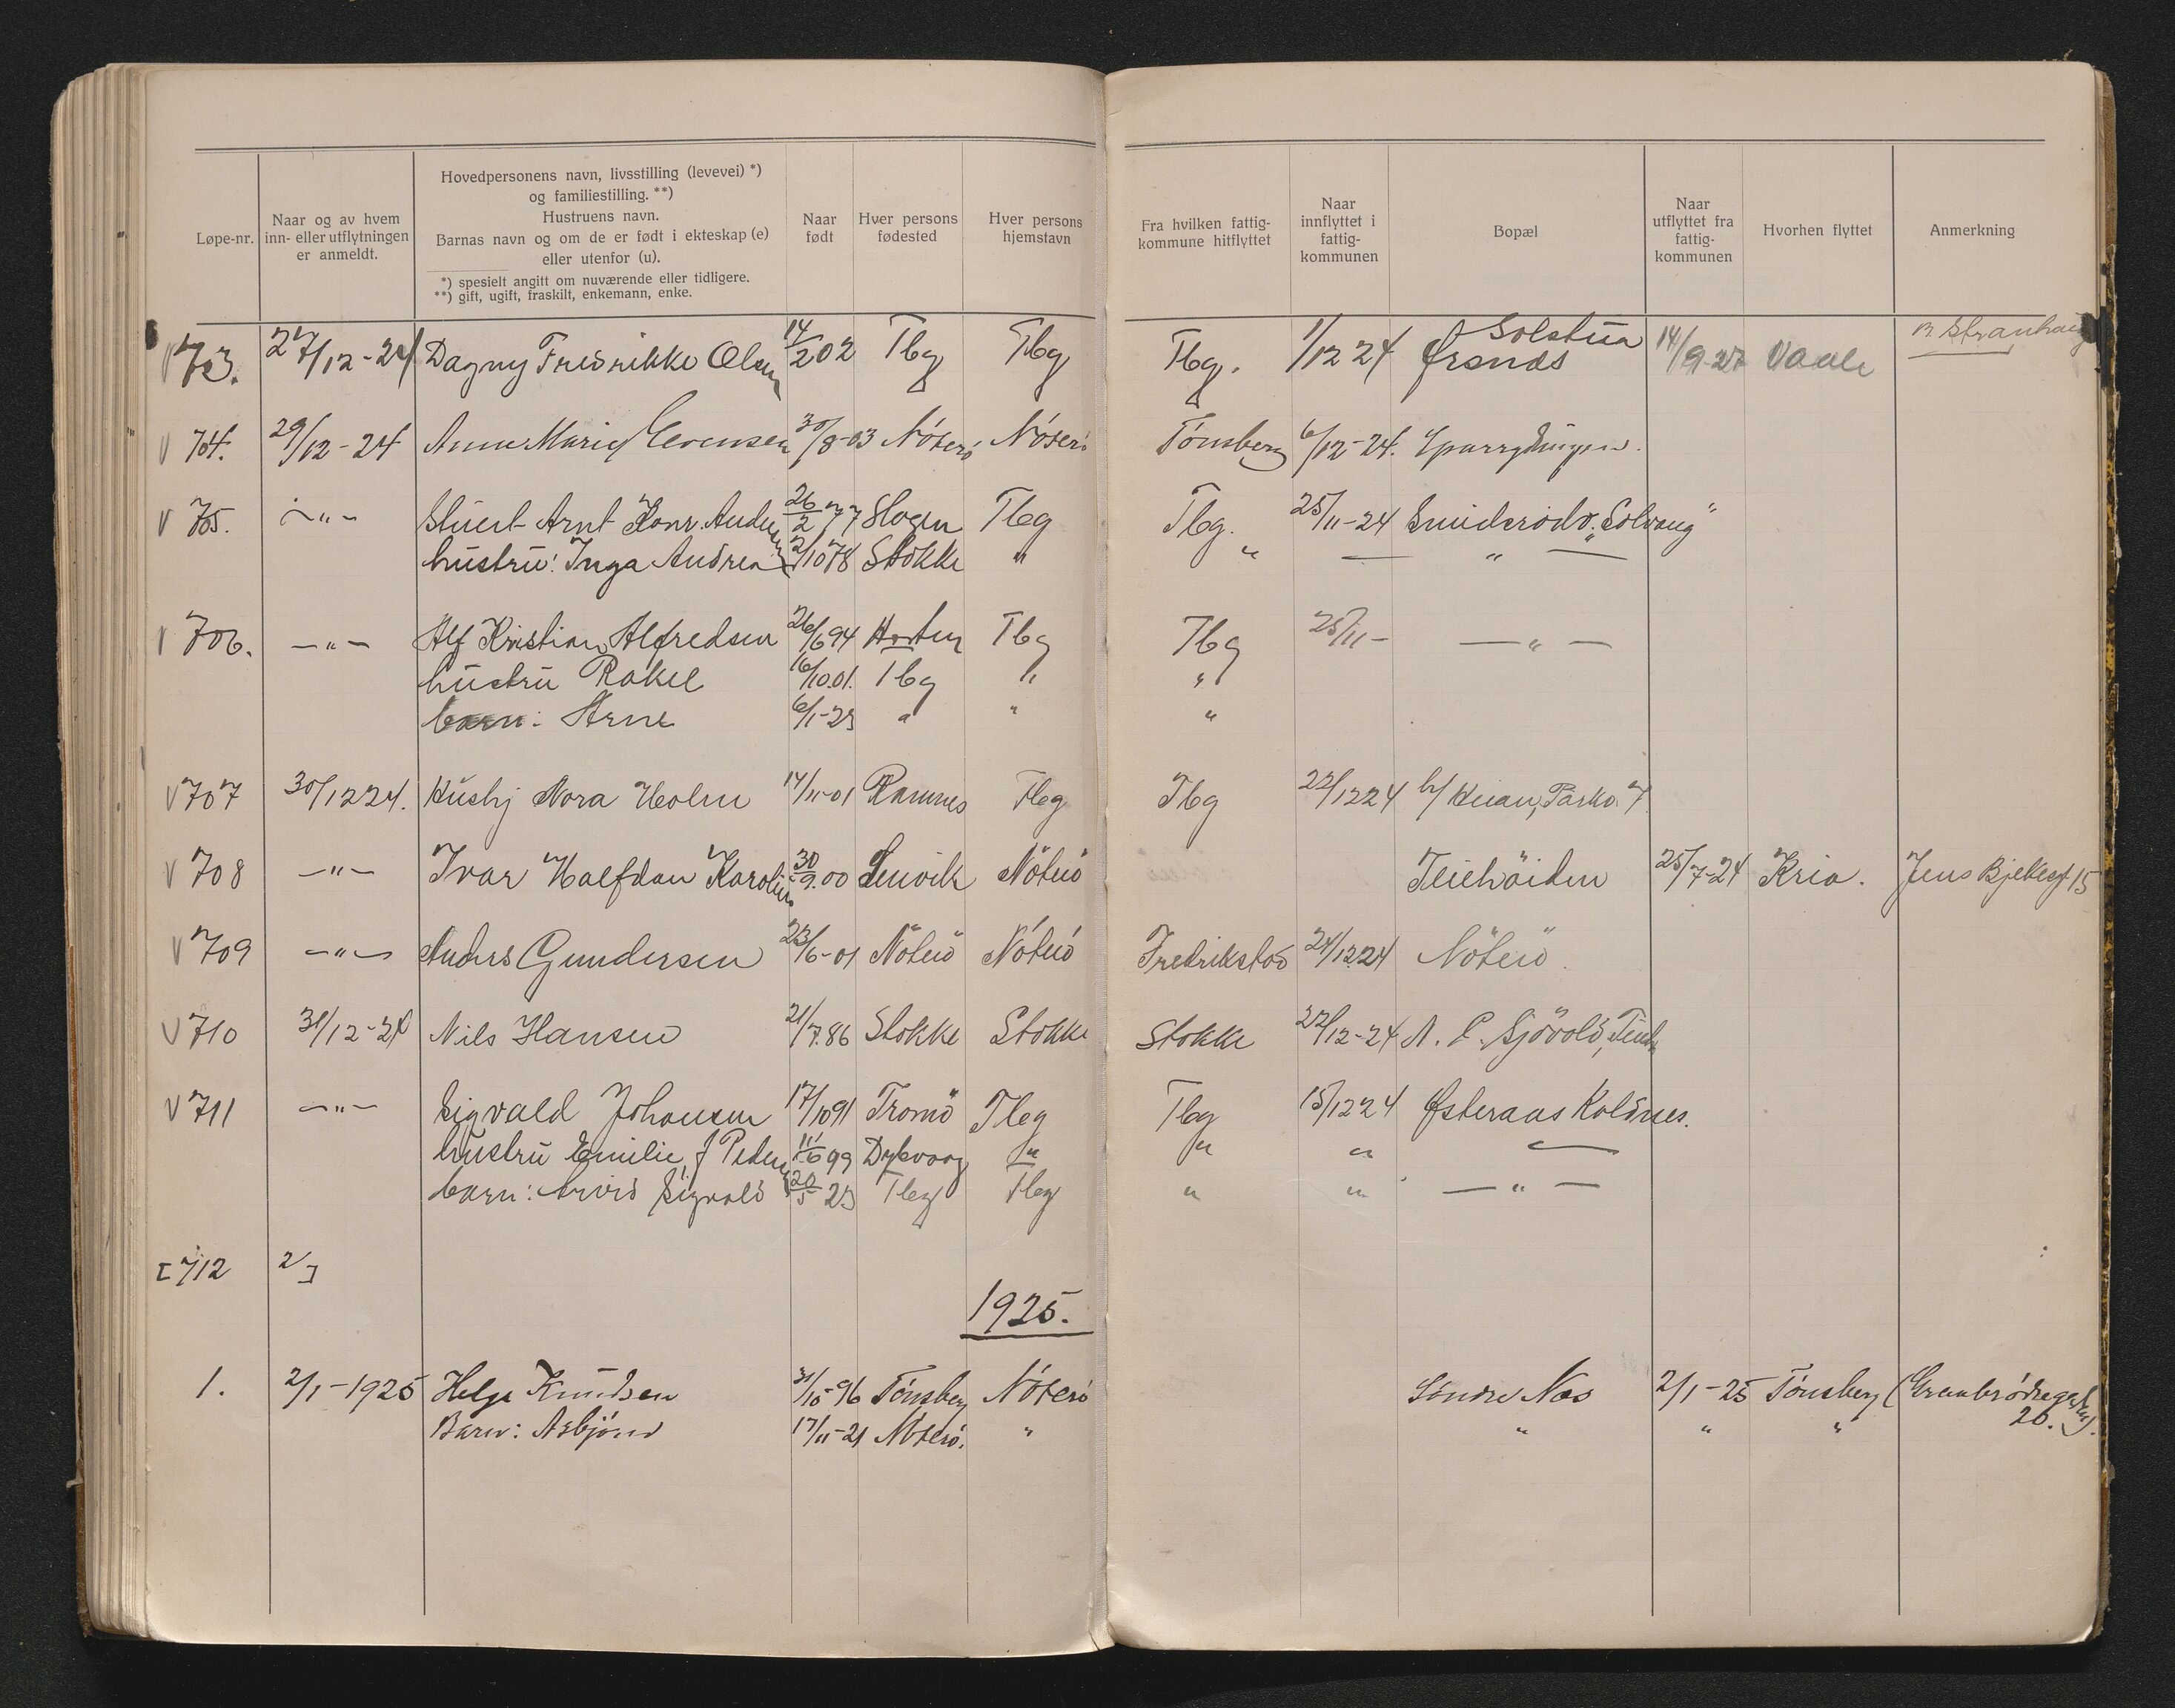 Løpe-nr.
Naar og av hvem
inn- eller utflytningen
er anmeldt.
Hovedpersonens navn, livsstilling (levevei) *)
og familiestilling. **)
Hustruens navn.
Barnas navn og om de er født i ekteskap (e)
eller utenfor (u).
*) spesielt angitt om nuværende eller tidligere.
**) gift, ugift, fraskilt, enkemann, enke.
Naar
født
Hver persons
fødested
Hver persons
hjemstavn
Fra hvilken fattig-
kommune hitflyttet
Naar
innflyttet i
fattig-
kommunen
Bopæl
Naar
utflyttet fra
fattig-
kommunen
Hvorhen flyttet
Anmerkning
V 703. 27/12-24 Dagny Fredrikke Olsen 14/2 02 Tbg Tbg Tbg. 1/12 24 Solstua
Ørsnes 14/9-27 Vaale
V 704. 29/12-24 Anna Marie Evensen 30/8-03 Nøterö Nøterö Tönsberg 6/12-24.
V 705. -"- Arnt Konr. Andersen 26/2 77 Slagen Tbg Tbg. 25/11-24 Smiderød v. "Solvang"
hustru: Inga Andrea 2/10 78 Stokke " " — " —
V 706. -"- Alf Kristian Alfredsen 26/6 94 Horten Tbg Tbg 25/11- — " —
hustru Rakel 16/10.01. Tbg " "
barn: Arne 6/1-23 " " "
V 707 30/12 24. Hushj Nora Holm 14/11-01 Ramnes Tbg Tbg 22/12 24
V 708 -"- Ivar Halfdan Karolius 30/9.00 Lenvik Nöterö Teiehöiden 25/7-24 Kria. Jens Bjelkesg. 15
V 709 -"- Anders Gundersen 23/6-01 Nöterö Nöterö Fredrikstad 24/12 24 Nöterö
V 710 31/12-24 Nils Hansen 21/7.86 Stokke Stokke Stokke 22/12-24 Sjövold,
V 711 -"- Sigvald Johansen 17/10 91 Tromö Tbg Tbg 15/12 24 Østeraas Kaldnes.
hustru Emilie, f Petersen 11/6 99 Dybvaag " " " —
barn: Arvid Sigvald 20/5 23 Tbg Tbg " " — " —
[712 2/]
1925.
1. 2/1-1925 Helga Knudsen 31/10-96 Tönsberg Nöterö Söndre Nes 2/1-25 Tönsberg (Graabrödregaten
20.)
Barn: Asbjörn 17/11-21 Nöterö. " " " "